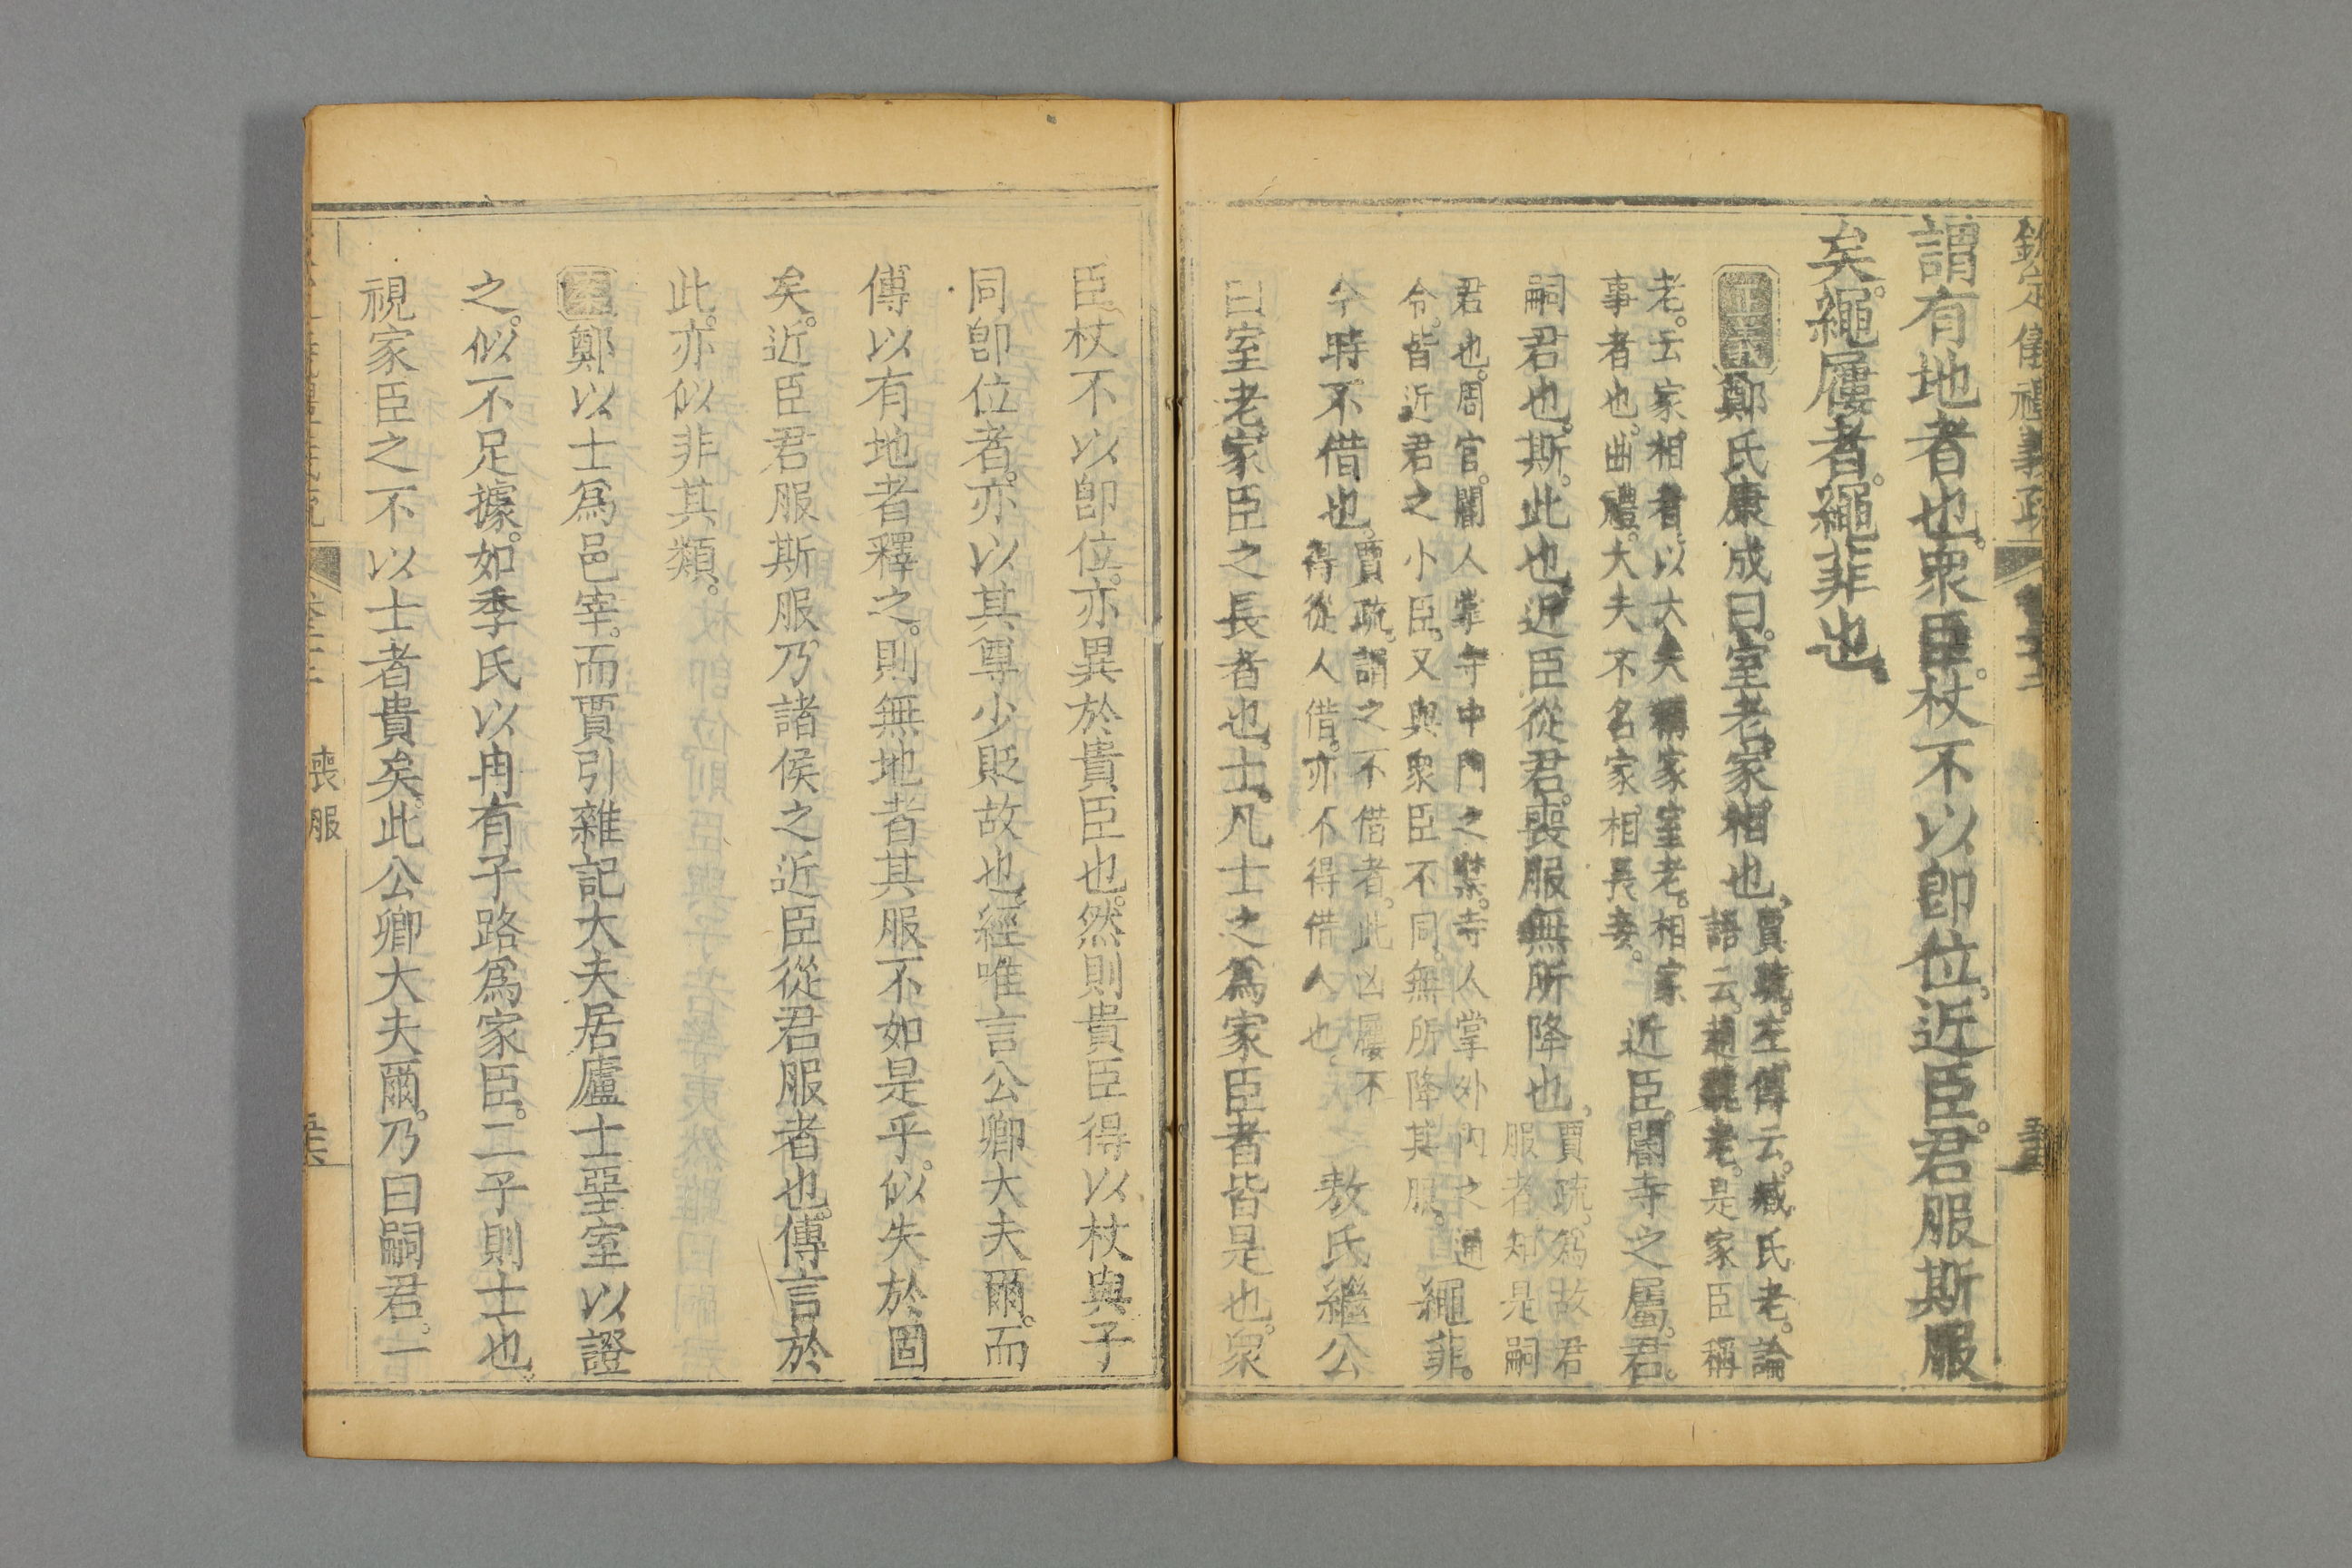 欽定儀禮義疏
謂有地者也。衆臣。杖不以卽位。近臣。君服斯服
矣。繩屨者。繩菲也。
正義鄭氏康成曰。室老。家相也。賈疏。左傳云。臧氏老。論
語云。趙魏老。是家臣稱
老。云家相者。以大夫稱家。室老。相家
事者也。曲禮。大夫不名家相長妾。
近臣。閽寺之屬。君。
嗣君也。斯。此也。近臣從君。喪服無所降也。賈疏。爲故君
服者。知是嗣
君也。周官。閽人掌守中門之禁。寺人掌外內之通
令。皆近君之小臣。又與衆臣不同。無所降其服。
繩菲。
今時不借也。賈疏。謂之不借者。此凶屨不
得從人借。亦不得借人也。
敖氏繼公
曰室老。家臣之長者也。士。凡士之爲家臣者皆是也。衆
臣杖不以卽位。亦異於貴臣也。然則貴臣得以杖與子
同卽位者。亦以其尊少貶故也。經唯言公卿大夫爾。而
傳以有地者釋之。則無地者其服不如是乎。似失於固
矣。近臣君服斯服。乃諸侯之近臣從君服者也。傳言於
此。亦似非其類。
案鄭以士爲邑宰。而賈引雜記大夫居廬士堊室以證
之。似不足據。如季氏以冉有子路爲家臣。二子則士也。
視家臣之不以士者貴矣。此公卿大夫爾。乃曰嗣君。一
喪服